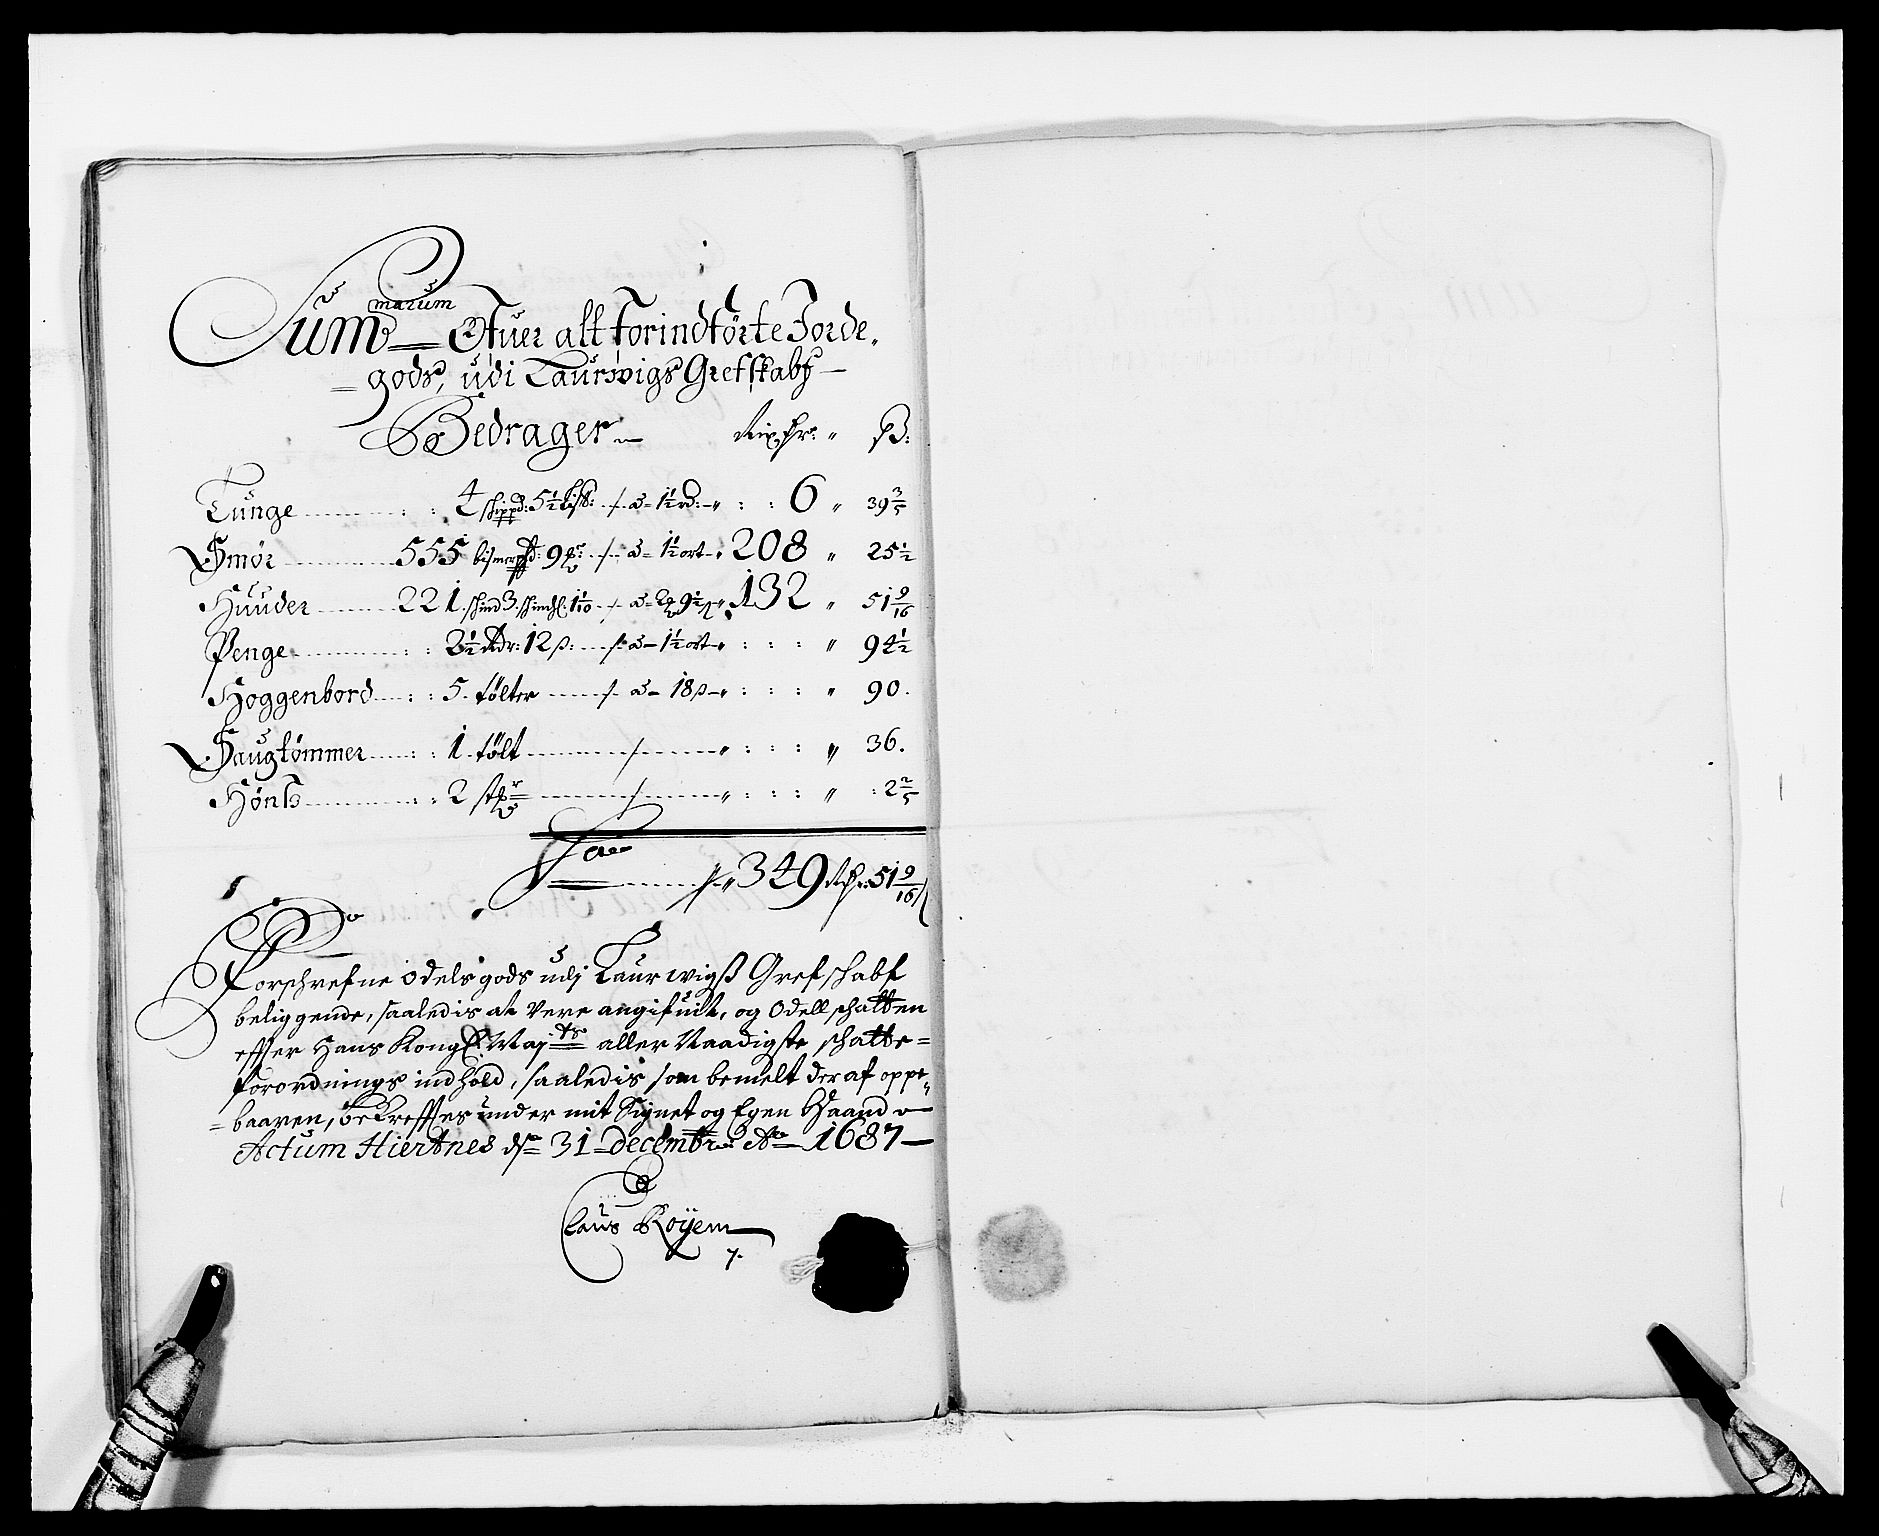 Summarum Ofuer alt forindførte Jorde,
gods, udi Laurvigs Grefskabß
Bedrager Rixdr: " ß:
Tunge 4 shippd: 5½ Lisß: /. a 1½ rd: " : : 6 " 39 3/5
Smør 555 bismerpd: 9 /. a 1½ ort " 208 " 25½
Huuder 221 shind 3 1/10 /. a 9½ " 132 " 51 9/16
Penge 2½ Rdr: 12 ß: /. a 1½ ort " : : : " 94½
Hoggenbord : : 5 tølter /. a 18 ß " : : : " 90.
Saugtømmer : : 1 tølt / " : : : " 36.
Hønß : : 2 / " : : : " : 2 2/5
349 Rdr: 51 9/16
Forschrefne Odels gods udj Laurwigß Grefschabß
beliggende, saaledis at vere angifuit, og Odell schatten
effter Hans Kongl: Maj:ts aller Naadigste schatte=
forordnings indhold, saaledis som bemelt der af oppe"
=baaren, bekrefftes under mit Signet og Egen Haand
Actum Hiertnes ds 31 decembr: Ao 1687
Claus Røyem